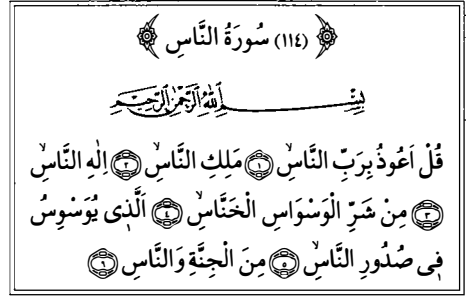 ﴿ (١١٤) سُورَةُ النَّاسِ ﴾
بِسْمِ اللّٰهِ الرَّحْمٰنِ الرَّحِيمِ
قُلْ اَعُوذُ بِرَبِّ النَّاسِۙ ﴿١﴾ مَلِكِ النَّاسِۙ ﴿٢﴾ اِلٰهِ النَّاسِۙ
﴿٣﴾ مِنْ شَرِّ الْوَسْوَاسِ الْخَنَّاسِۙ ﴿٤﴾ اَلَّذٖى يُوَسْوِسُ
فٖى صُدُورِ النَّاسِۙ ﴿٥﴾ مِنَ الْجِنَّةِ وَالنَّاسِ ﴿٦﴾